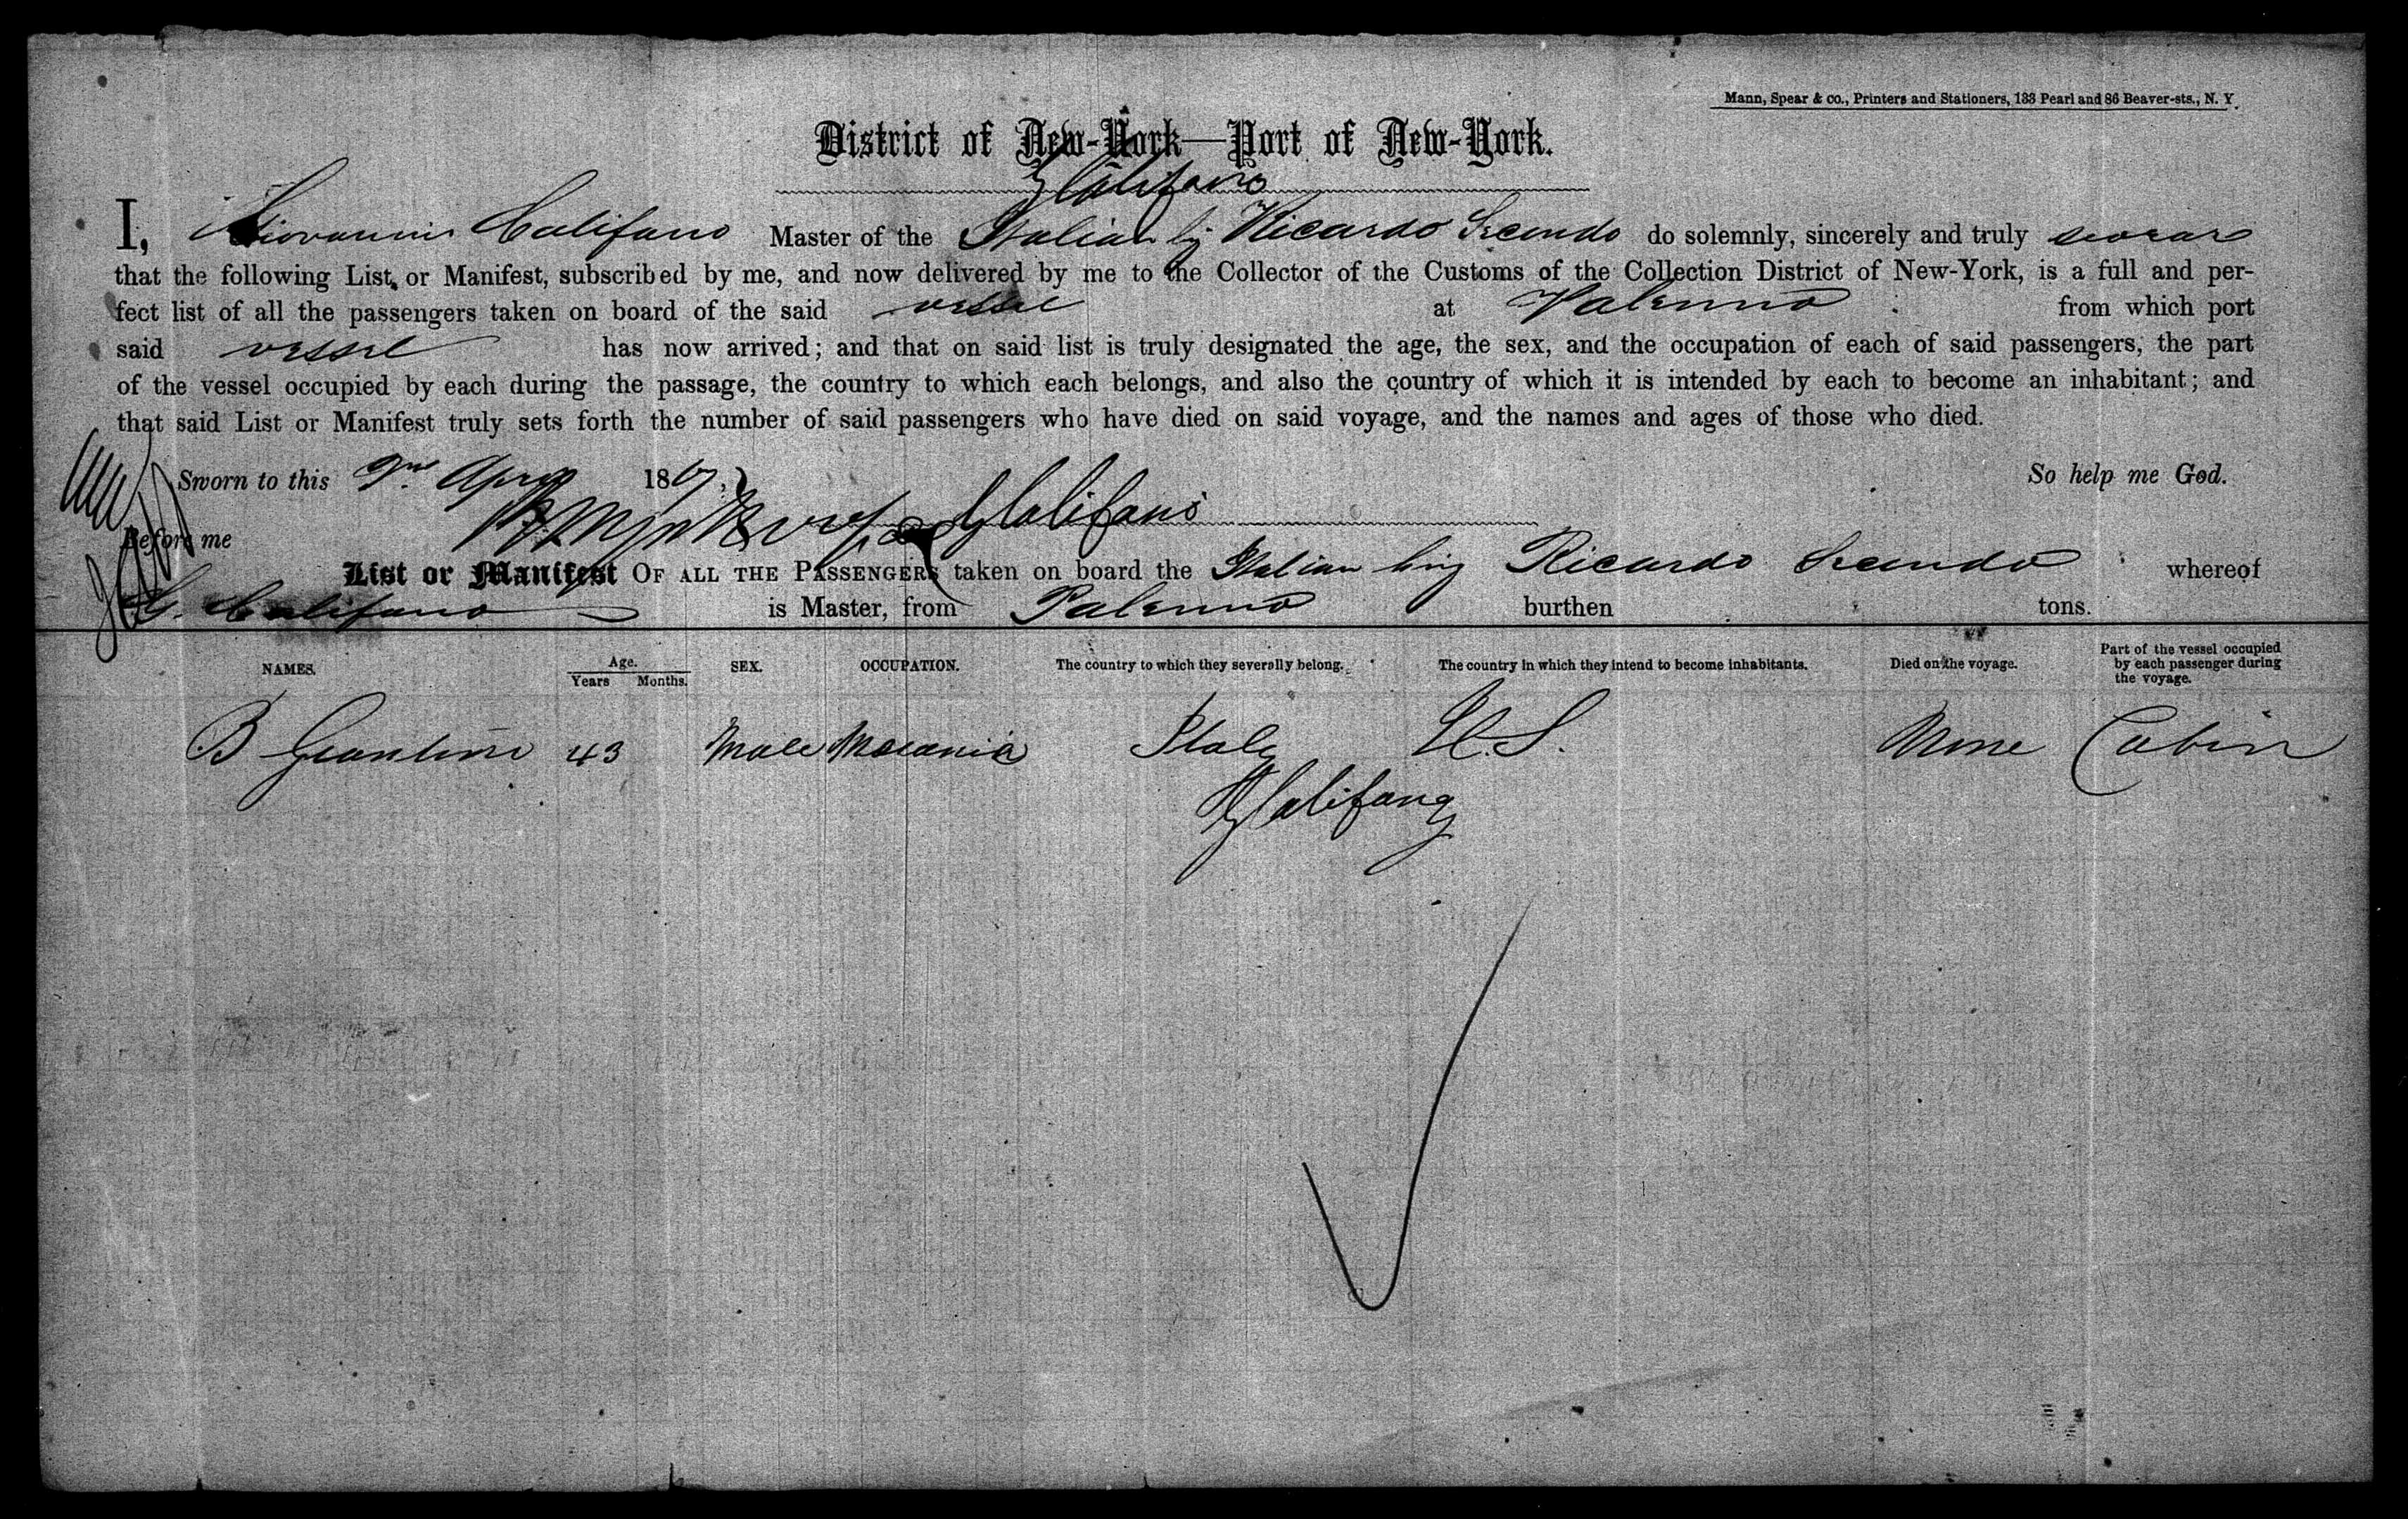 Mann, Spear & co., Printers and Stationers, 133 Pearl and 86 Beaver-sts., N. Y.
District of New-York—Port of New-York.
G Califano
I, Giovanni Califano Master of the Italian bg Ricardo Secondo do solemnly, sincerely and truly swear
that the following List, or Manifest, subscribed by me, and now delivered by me to the Collector of the Customs of the Collection District of New-York, is a full and per-
fect list of all the passengers taken on board of the said vessel at Palermo from which port
said vessel has now arrived; and that on said list is truly designated the age, the sex, and the occupation of each of said passengers, the part
of the vessel occupied by each during the passage, the country to which each belongs, and also the country of which it is intended by each to become an inhabitant; and
that said List or Manifest truly sets forth the number of said passengers who have died on said voyage, and the names and ages of those who died.
Sworn to this April 1867, So help me God.
G Califano
Before me
List or Manifest OF ALL THE PASSENGERS taken on board the Italian brig Ricardo Secondo whereof
G. Califano is Master, from Palermo burthen tons.
NAMES. Age. Years Months. SEX. OCCUPATION. The country to which they severally belong. The country in which they intend to become inhabitants. Died on the voyage. Part of the vessel occupied by each passenger during the voyage.
B 43 Male Mecanic Italy U.S. None Cabin
G Califano